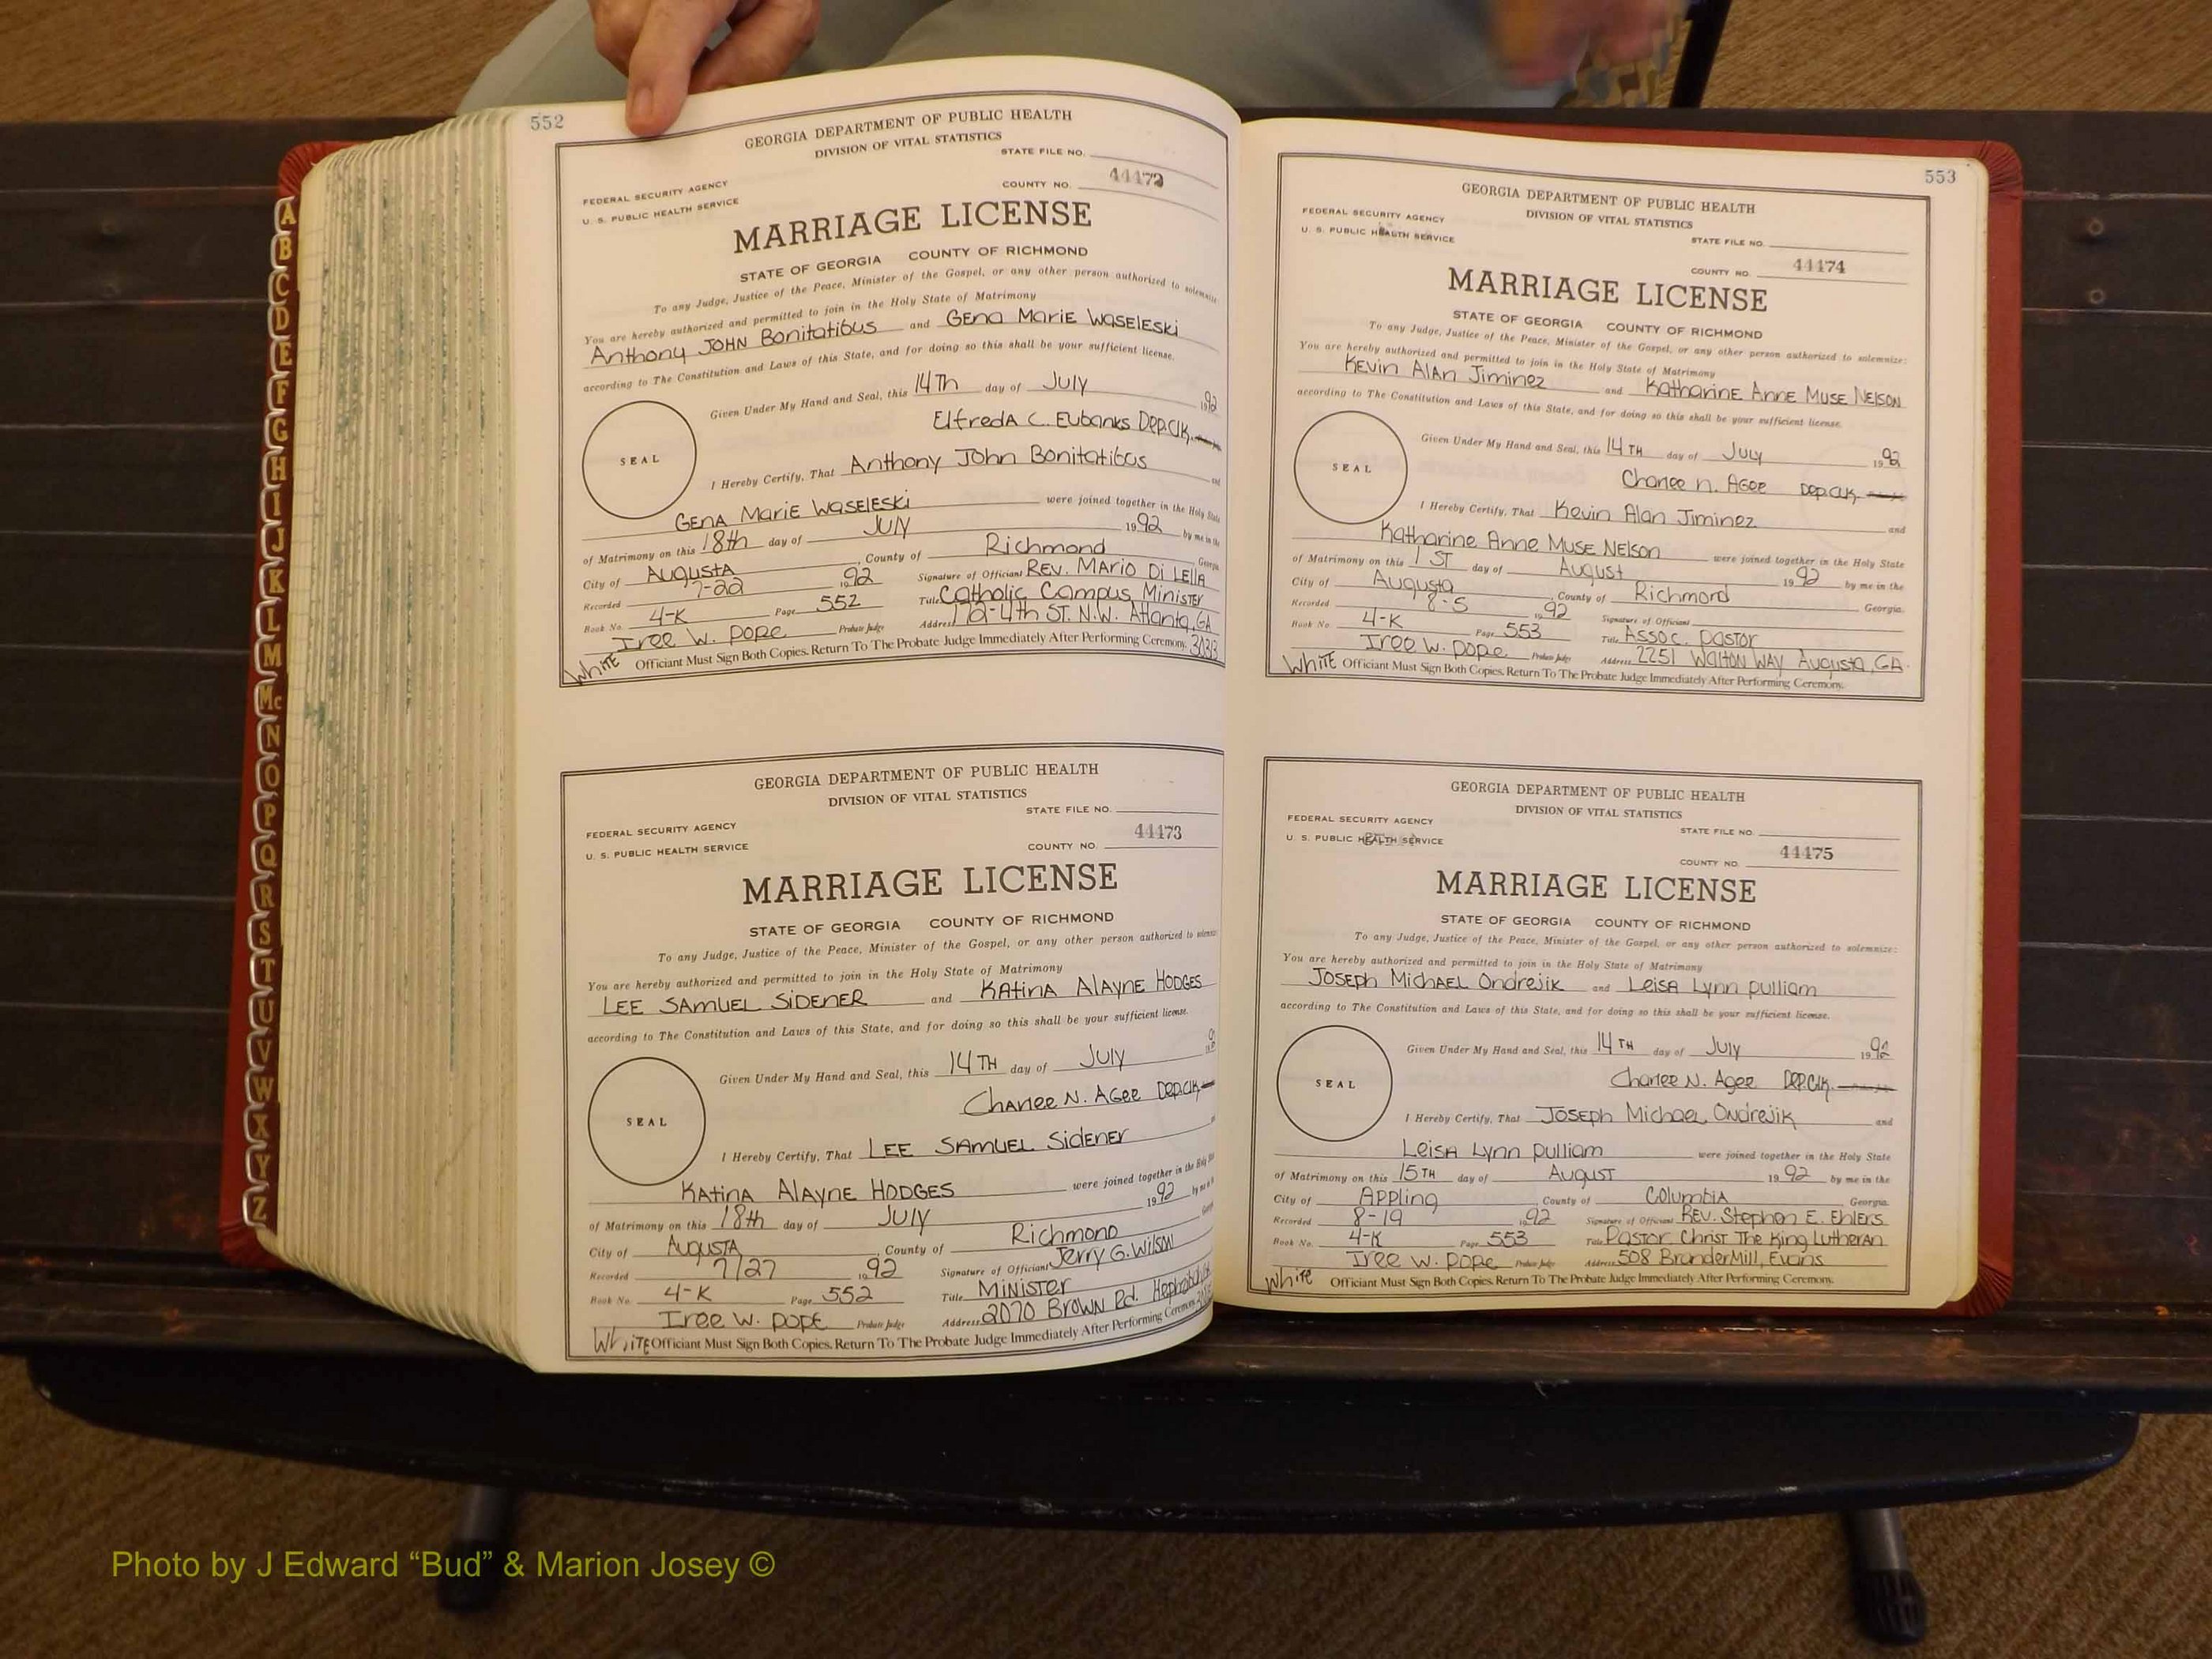 552
GEORGIA DEPARTMENT OF PUBLIC HEALTH
DIVISION OF VITAL STATISTICS
STATE FILE NO.
FEDERAL SECURITY AGENCY
U. S. PUBLIC HEALTH SERVICE
COUNTY NO. 44472
MARRIAGE LICENSE
STATE OF GEORGIA COUNTY OF RICHMOND
To any Judge, Justice of the Peace, Minister of the Gospel, or any other person authorized to solemnize:
You are hereby authorized and permitted to join in the Holy State of Matrimony
Anthony JOHN Bonitatibus and GENA MARIE WASELESKI
according to The Constitution and Laws of this State, and for doing so this shall be your sufficient license.
Given Under My Hand and Seal, this 14Th day of July 1992
ElfredA C. Eubanks DEP.Clk.
SEAL
I Hereby Certify, That Anthony John Bonitatibus and
GENA MARIE WASELESKI were joined together in the Holy State
of Matrimony on this 18th day of JULY 1992 by me in the
City of AUGUSTA, County of Richmond Georgia
Recorded 7-22 1992 Signature of Official REV. MARIO Di LELLA
Book No. 4-K Page 552 Title Catholic Campus MINISTER
Iree W. Pope Probate Judge Address 72-4th ST. N.W. Atlanta, GA
White Officiant Must Sign Both Copies. Return To The Probate Judge Immediately After Performing Ceremony. 30313
GEORGIA DEPARTMENT OF PUBLIC HEALTH
DIVISION OF VITAL STATISTICS
STATE FILE NO.
FEDERAL SECURITY AGENCY
U. S. PUBLIC HEALTH SERVICE
COUNTY NO. 44473
MARRIAGE LICENSE
STATE OF GEORGIA COUNTY OF RICHMOND
To any Judge, Justice of the Peace, Minister of the Gospel, or any other person authorized to solemnize:
You are hereby authorized and permitted to join in the Holy State of Matrimony
LEE SAMUEL SIDENER and KAtinA AlAynE HODGES
according to The Constitution and Laws of this State, and for doing so this shall be your sufficient license.
Given Under My Hand and Seal, this 14TH day of July
Charlee N. Agee DEP.Clk
SEAL
I Hereby Certify, That LEE SAMUEL SIDENER
KAtinA AlAynE HODGES were joined together in the Holy
of Matrimony on this 18th day of JULY 1992 by me in
City of AUGUSTA, County of Richmond
Recorded 7/27 1992 Signature of Official Jerry G. Wilson
Book No. 4-K Page 552 Title MINISTER
Iree W. Pope Probate Judge Address 2070 BROWN Rd. Hephzibah
White Officiant Must Sign Both Copies. Return To The Probate Judge Immediately After Performing Ceremony.
553
GEORGIA DEPARTMENT OF PUBLIC HEALTH
DIVISION OF VITAL STATISTICS
FEDERAL SECURITY AGENCY
U. S. PUBLIC HEALTH SERVICE
STATE FILE NO.
COUNTY NO. 44474
MARRIAGE LICENSE
STATE OF GEORGIA COUNTY OF RICHMOND
To any Judge, Justice of the Peace, Minister of the Gospel, or any other person authorized to solemnize:
You are hereby authorized and permitted to join in the Holy State of Matrimony
KEVIN AlAN Jiminez and KatharinE AnnE MUSE NELSON
according to The Constitution and Laws of this State, and for doing so this shall be your sufficient license.
Given Under My Hand and Seal, this 14TH day of July 1992
Charlee N. Agee DEP.Clk.
SEAL
I Hereby Certify, That Kevin Alan Jiminez and
Katharine Anne MUSE NElson were joined together in the Holy State
of Matrimony on this 1ST day of August 1992 by me in the
City of Augusta, County of Richmond Georgia.
Recorded 8-5 1992 Signature of Official
Book No 4-K Page 553 Title Assoc. Pastor
Iree W. Pope Probate Judge Address 2251 WALTON WAY Augusta, GA.
White Officiant Must Sign Both Copies. Return To The Probate Judge Immediately After Performing Ceremony.
GEORGIA DEPARTMENT OF PUBLIC HEALTH
DIVISION OF VITAL STATISTICS
FEDERAL SECURITY AGENCY
U. S. PUBLIC HEALTH SERVICE
STATE FILE NO.
COUNTY NO. 44475
MARRIAGE LICENSE
STATE OF GEORGIA COUNTY OF RICHMOND
To any Judge, Justice of the Peace, Minister of the Gospel, or any other person authorized to solemnize:
You are hereby authorized and permitted to join in the Holy State of Matrimony
JOSEPH MICHAEL Ondrejik and Leisa Lynn Pulliam
according to The Constitution and Laws of this State, and for doing so this shall be your sufficient license.
Given Under My Hand and Seal, this 14TH day of July 1992
Charlee N. Agee DEP.Clk.
SEAL
I Hereby Certify, That JOSEPH Michael Ondrejik and
Leisa Lynn Pulliam were joined together in the Holy State
of Matrimony on this 15TH day of August 1992 by me in the
City of Appling, County of Columbia Georgia
Recorded 8-19 1992 Signature of Official REV. Stephen E. Ehlers
Book No. 4-K Page 553 Title Pastor Christ The King Lutheran
Iree W. Pope Probate Judge Address 508 BranderMill, Evans
White Officiant Must Sign Both Copies. Return To The Probate Judge Immediately After Performing Ceremony.
A
B
C
D
E
F
G
H
I
J
K
L
M
Mc
N
O
P
Q
R
S
T
U
V
W
X
Y
Z
Photo by J Edward “Bud” & Marion Josey ©